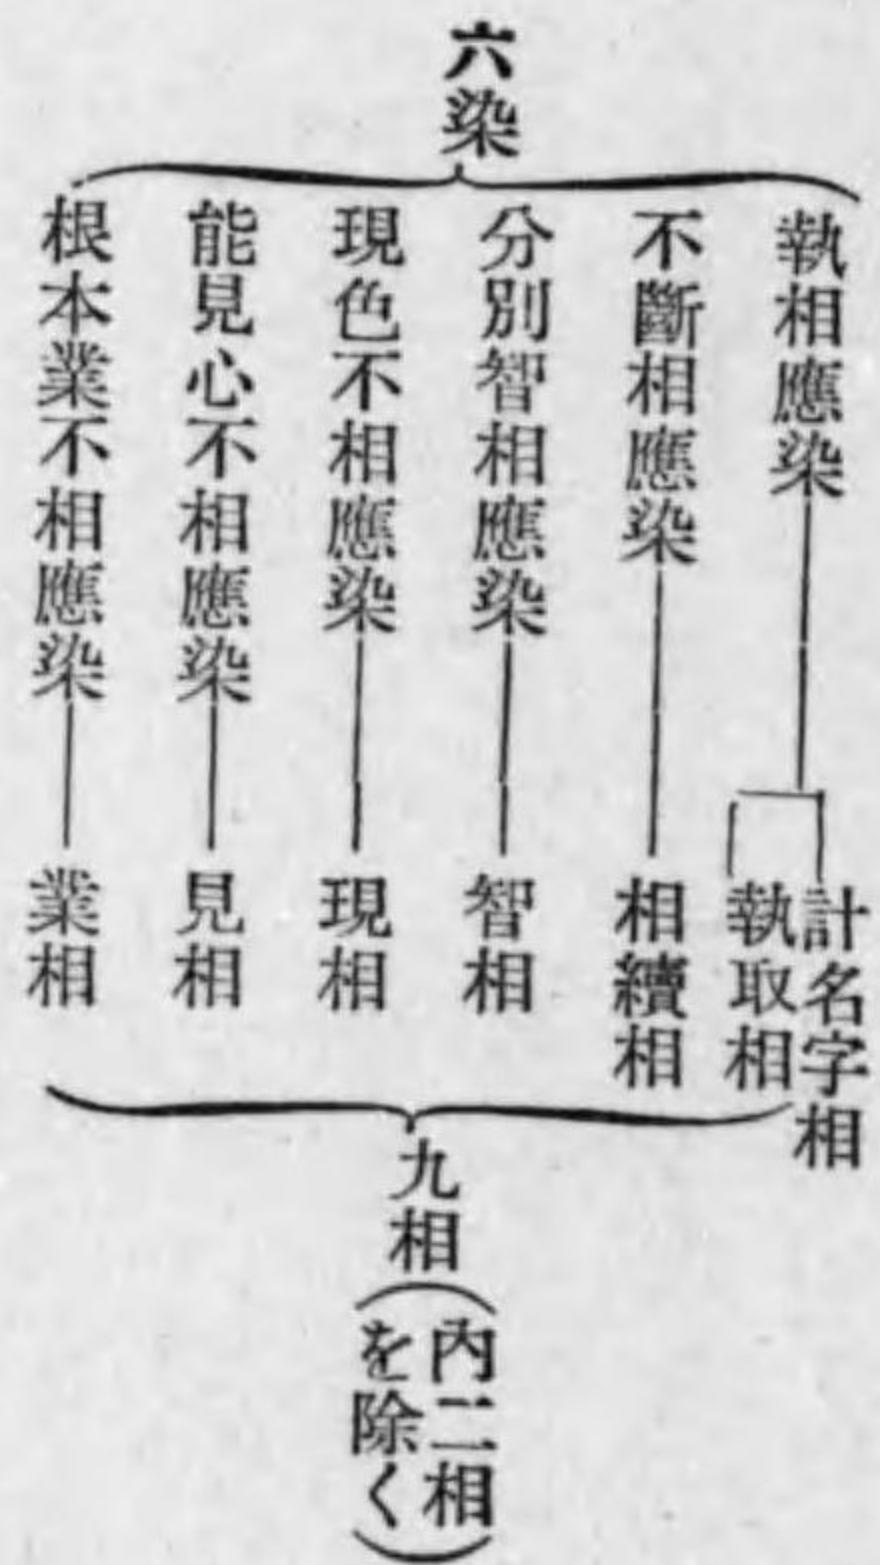 六染
執相應染
計名字相
執取相
不斷相應染
相續相
分別智相應染
智相
現色不相應染
現相
能見心不相應染
見相
根本業不相應染
業相
九相
(內二相
を除く)